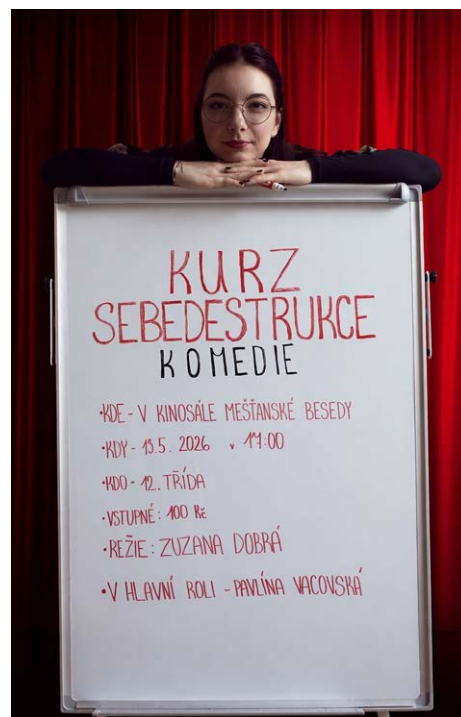 KURZ
SEBEDESTRUKCE
KOMEDIE
•KDE - V KINOSÁLE MEŠŤANSKÉ BESEDY
•KDY - 13.5. 2026 v 17:00
•KDO - 12. TŘÍDA
•VSTUPNÉ: 100 Kč
•REŽIE: ZUZANA DOBRÁ
•V HLAVNÍ ROLI - PAVLÍNA VACOVSKÁ